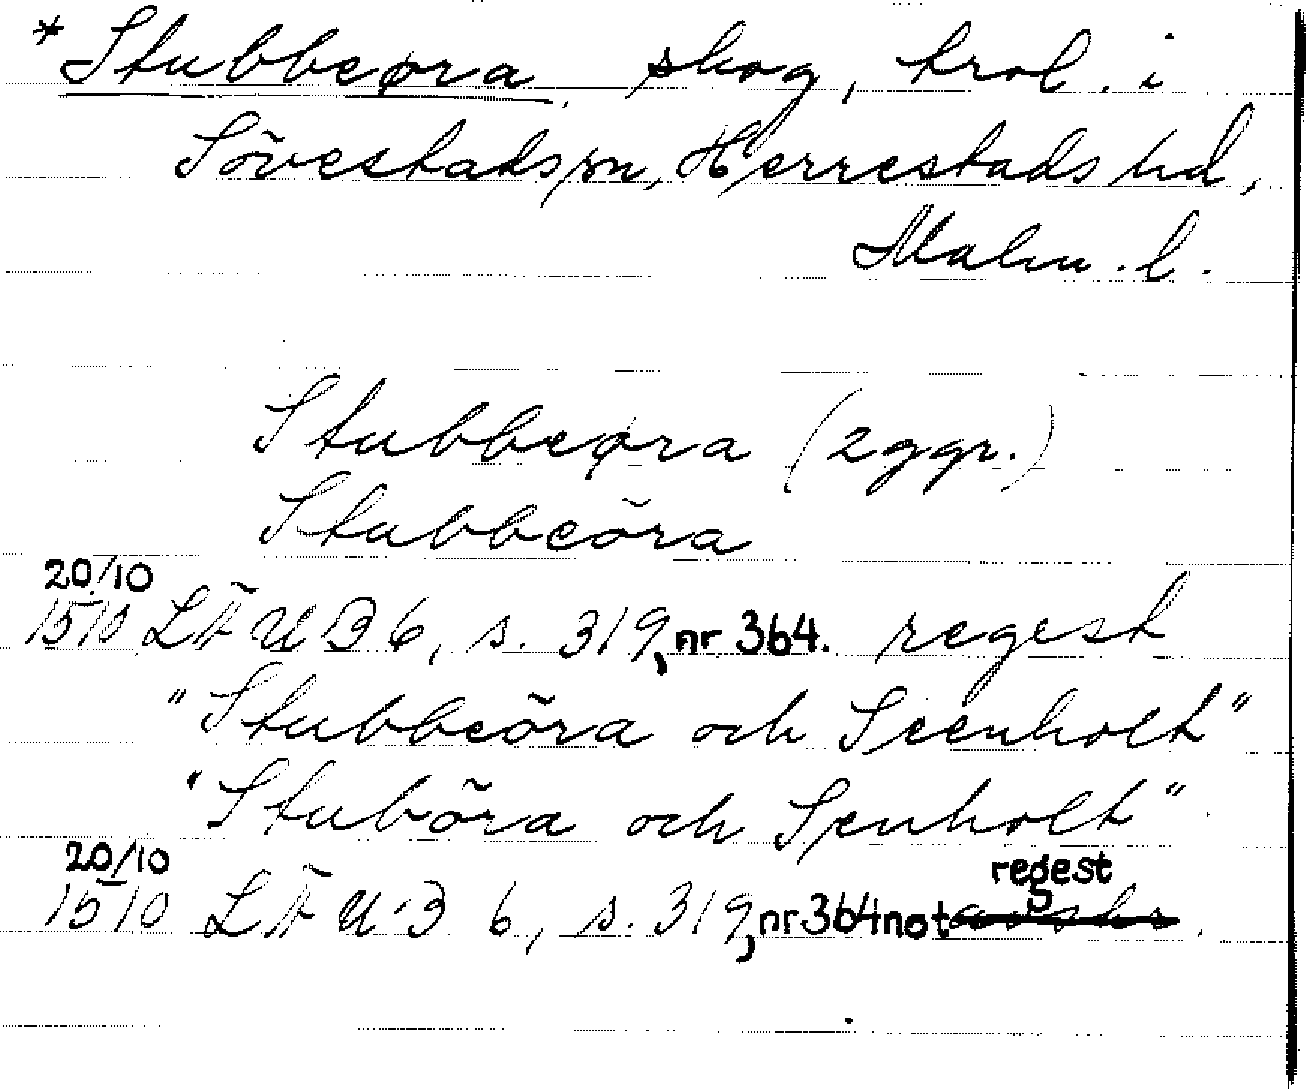 *Stubbeøra, skog, trol. i
Sövestads sn, Herrestads hd,
Malm. l.
Stubbeøra (2 ggr.)
Stubbeöra
20/10
1510 LÄUB 6, s. 319, nr 364. regest
"Stubbeöra och Seenholt"
"Stuböra och Senholt"
20/10 regest
1510 LÄUB 6, s. 319, nr 364 not